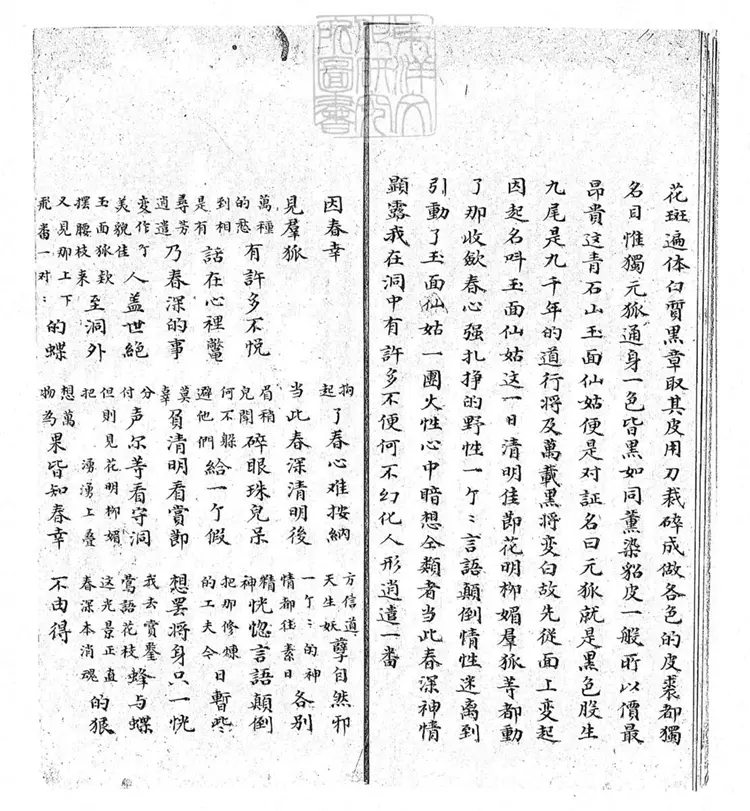 花斑遍体白質黑章取其皮用刀裁碎成做各色的皮裘都獨
名目惟獨元狐通身一色皆黑如同薰染貂皮一般所以價最
昂貴這青石山玉面仙姑便是对証名曰元狐就是黑色股生
九尾是九千年的道行將及萬載黑將变白故先從面上变起
因起名叫玉面仙姑這一日清明佳節花明柳媚羣狐等都動
了那收歛春心强扎挣的野性一个〻言語顛倒情性迷离到
引動了玉面仙姑一團火性心中暗想仝類者当此春深神情
顕露我在洞中有許多不便何不幻化人形逍遣一番
因春幸 拘起了春心难按納 方信道天生妖孽自然邪
見羣狐 当此春深清明後 一个〻的神情都往素日各別
萬種的愁有許多不悦 眉稍兒開碎眼珠兒呆 精神恍惚言語顛倒
到相是有話在心裡鱉 何不躲避他們給一个假 把那修煉的工夫令日暫些
尋芳逍遣乃春深的事 莫辜負清明看賞節 想罢將身只一恍
变作个美貌佳人盖世絕 分付声尔等看守洞 我去賞鑒鶯語花枝蜂与蝶
玉面狐款擺腰枝来至洞外 但則見花明柳媚把湧湧上疊 這光景正直春深本消魂的狠
又見那上下飛畨一对〻的蝶 想萬物為果皆知春幸 不由得